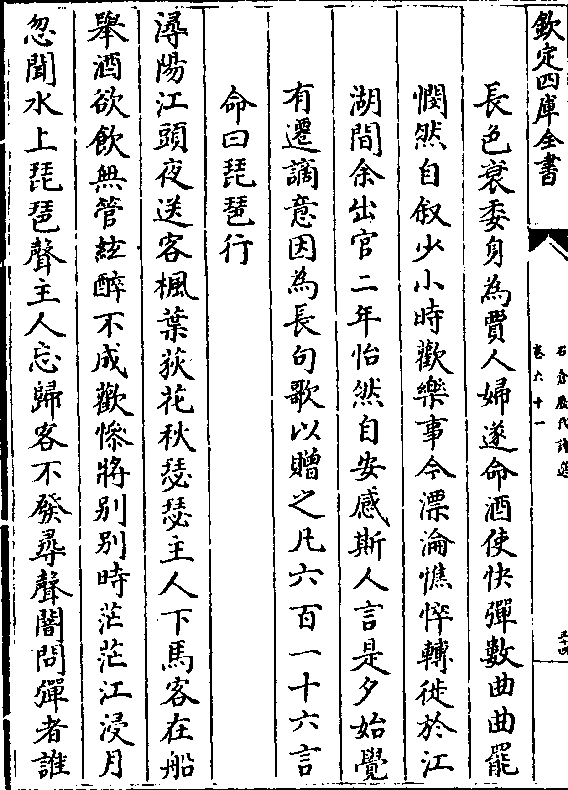 欽定四庫全書
石倉歷代詩選
卷六十一
長色衰委身為賈人婦遂命酒使快彈數曲曲罷
憫然自叙少小時歡樂事今漂淪憔悴轉徙於江
湖間余出官二年恬然自安感斯人言是夕始覺
有遷謫意因為長句歌以贈之凡六百一十六言
命曰琵琶行
潯陽江頭夜送客楓葉荻花秋瑟瑟主人下馬客在船
舉酒欲飲無管絃醉不成歡慘將别别時茫茫江浸月
忽聞水上琵琶聲主人忘歸客不發尋聲闇問彈者誰